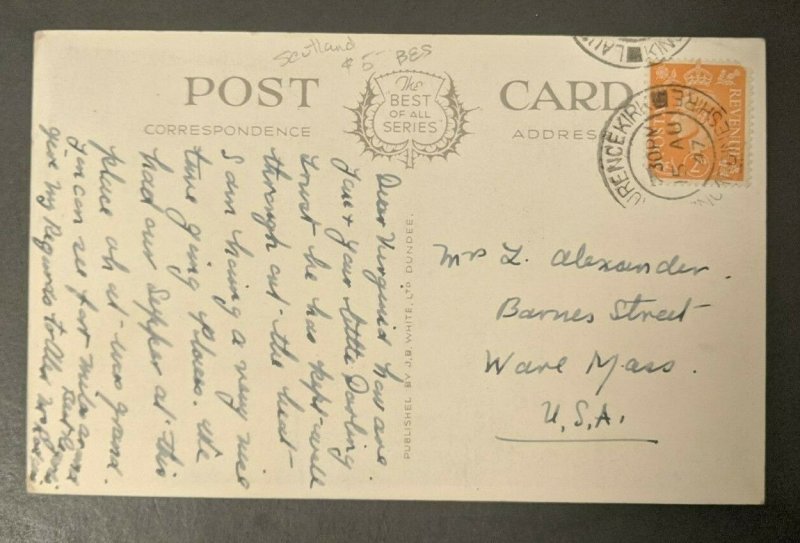 Scotland
$5- BES
POST CARD
CORRESPONDENCE
ADDRESS
The
BEST
OF ALL
SERIES
PUBLISHED BY J.B. WHITE, LTD DUNDEE.
Dear Virginia how are
you & your little Darling
trust he has kept well
through out the heat
I am having a very nice
time going places. We
had our supper at this
place oh it was grand.
you can see for miles
give my Regards to
Mrs L. Alexander.
Barnes Street
Ware Mass.
U.S.A.
LAU
KIN
LAURENCEKIRK
KINCARDINESHIRE
30PM
5 AU
47
REVENUE